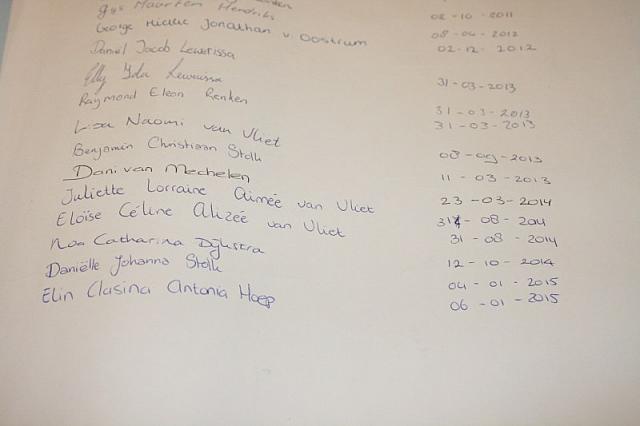 Gijs Maarten Hendriks 02-10-2011
George Hielke Jonathan v. Oostrum 08-04-2012
Daniel Jacob Lewerissa 02-12-2012
Elly Ida Lewerissa 31-03-2013
Raymond Eleon Renken 31-03-2013
Lisa Naomi van Vliet 31-03-2013
Benjamin Christiaan Stolk 08-09-2013
Dani van Mechelen 11-03-2013
Juliette Lorraine Aimée van Vliet 23-03-2014
Eloïse Céline Alizée van Vliet 31-08-2014
Noa Catharina Dijkstra 31-08-2014
Daniëlle Johanna Stolk 12-10-2014
Elin Clasina Antonia Hoep 04-01-2015
06-01-2015